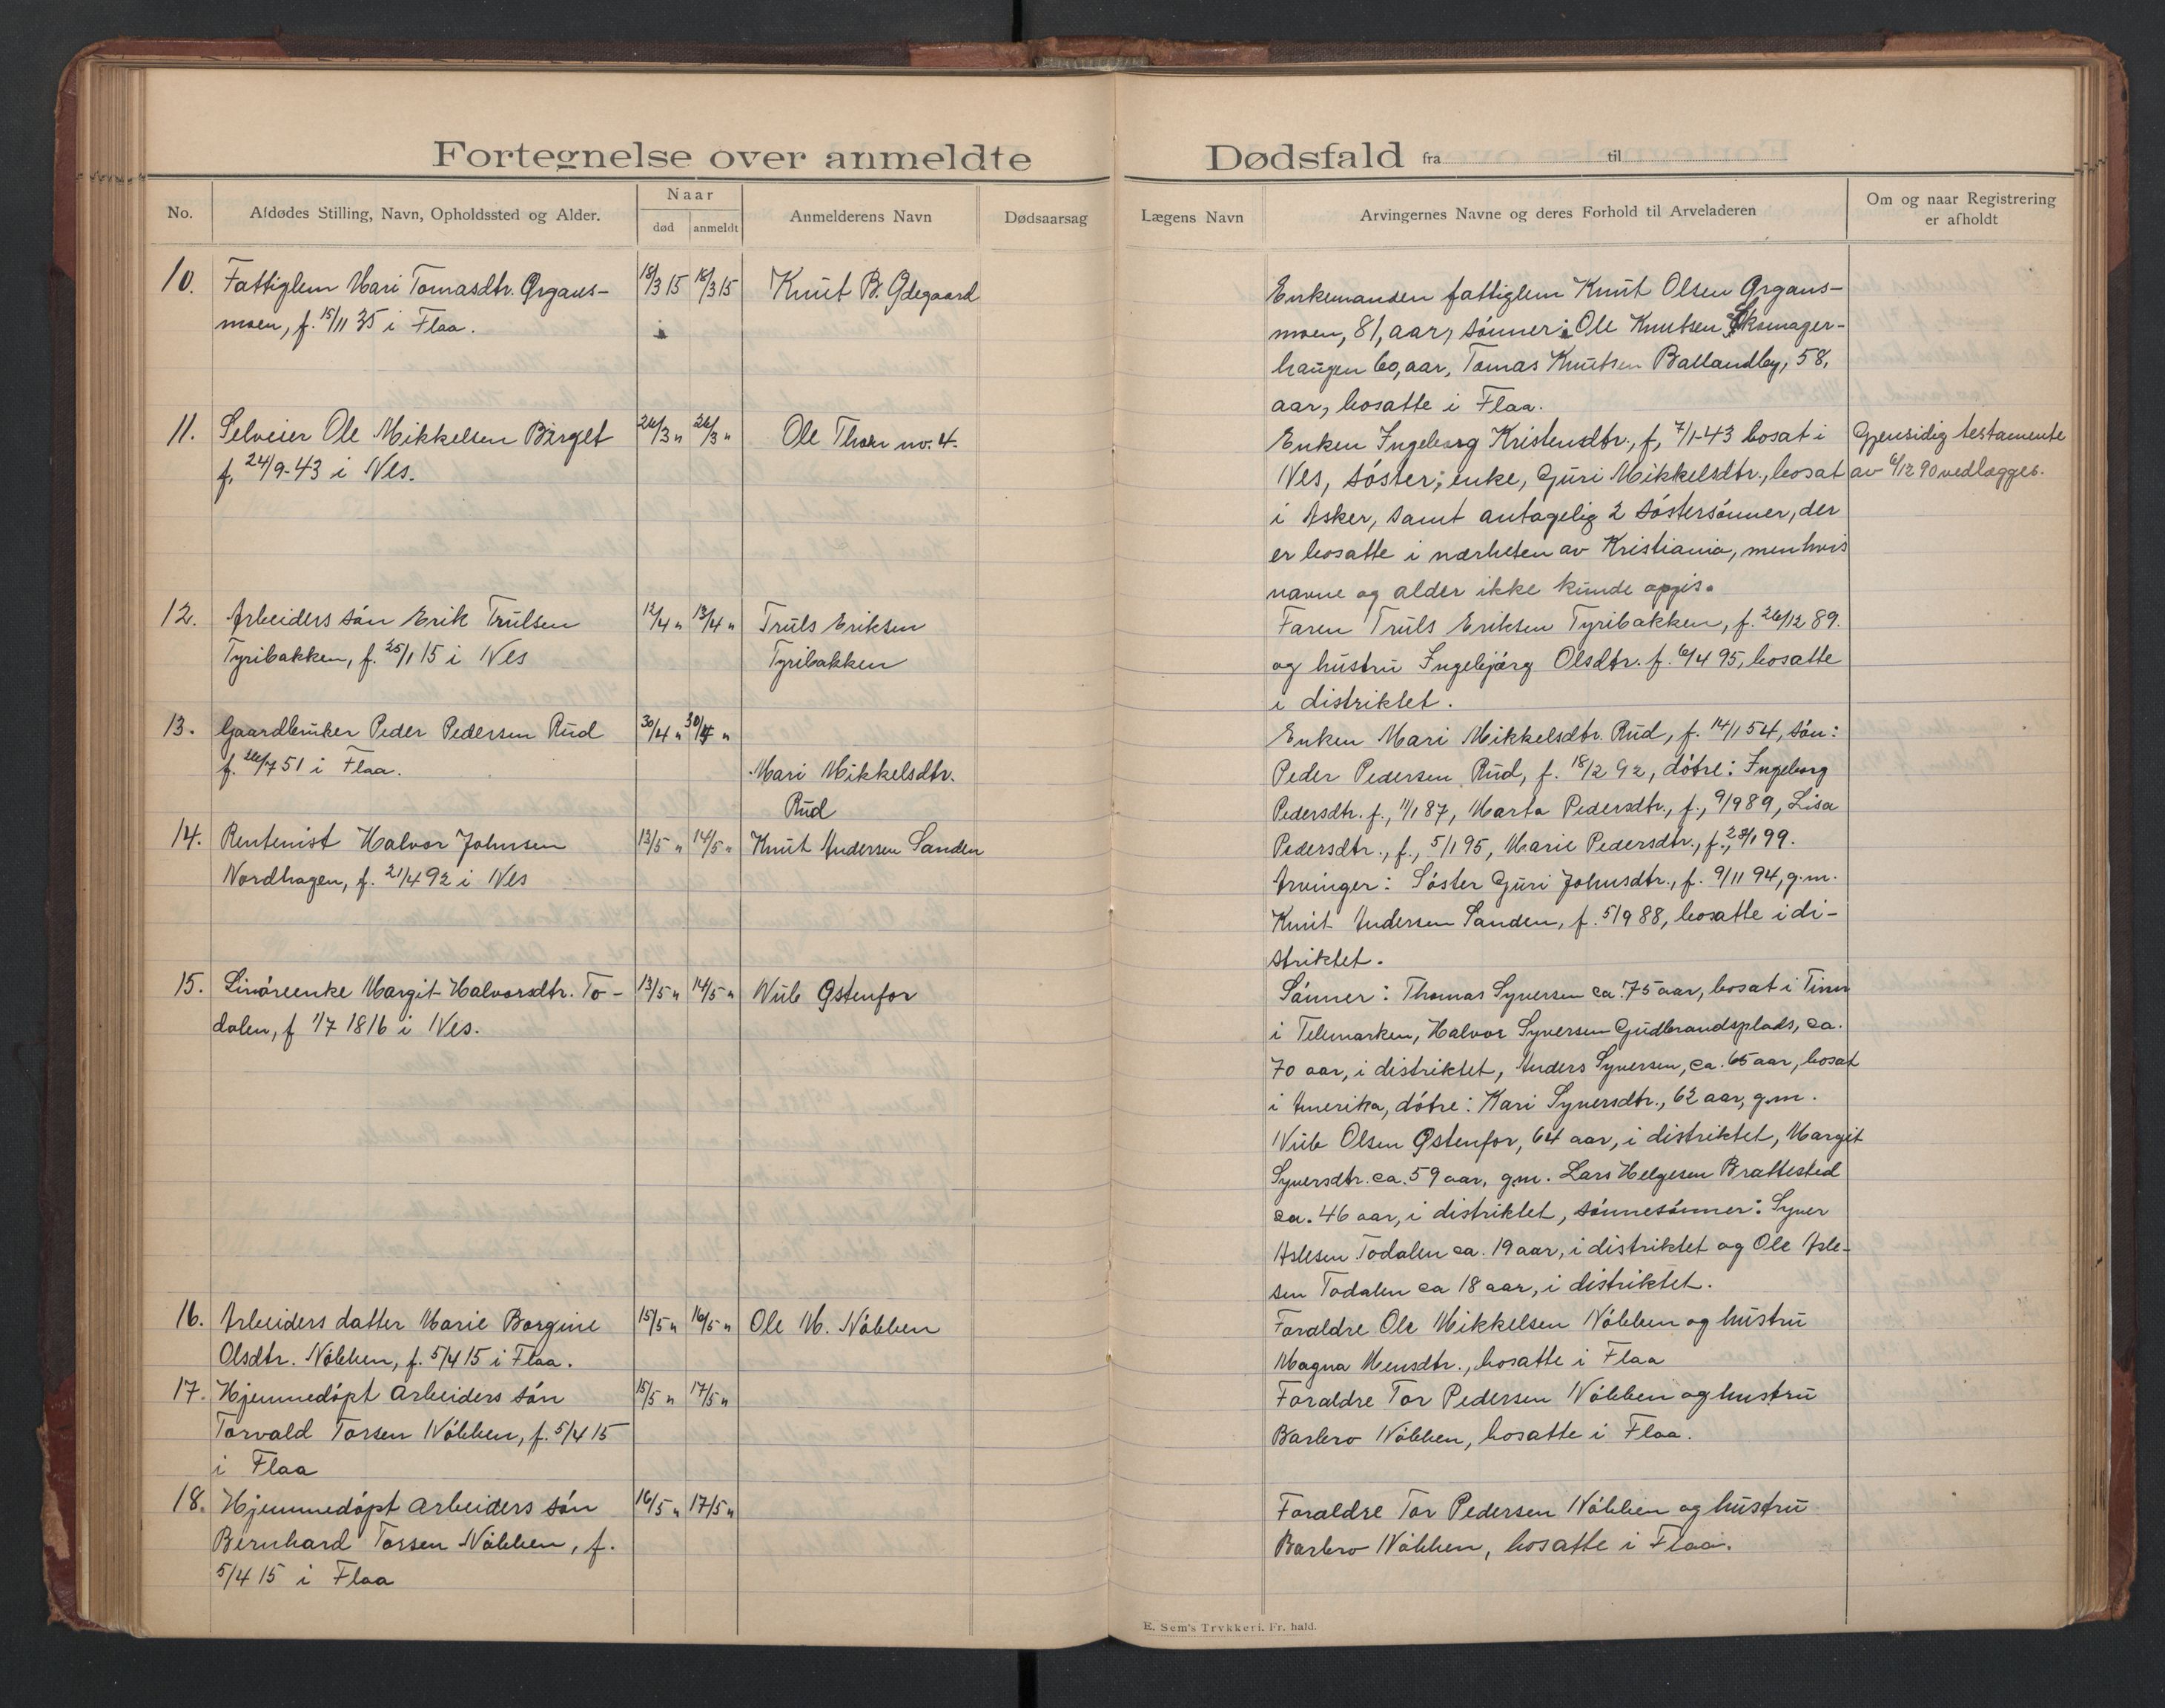 Fortegnelse over anmeldte Dødsfald fra til
No.
Afdødes Stilling, Navn, Opholdssted og Alder.
Naar
død
anmeldt
Anmelderens Navn
Dødsaarsag
Lægens Navn
Arvingernes Navne og deres Forhold til Arveladeren
Om og naar Registrering
er afholdt
10. Fattiglem Mari Tomasdtr. Ørgans-
moen, f. 15/11 35 i Flaa.
18/3 15 18/3 15
Knut B. Ødegaard
Enkemanden fattiglem Knut Olsen Ørgans-
moen, 81, aar, sønner: Ole Knutsen
haugen 60, aar, Tomas Knutsen Ballandby, 58,
aar, bosatte i Flaa.
11. Selveier Ole Mikkelsen Børget
f. 24/9-43 i Nes.
26/3 " 26/3 "
Ole Thoen no. 4.
Enken Ingeborg Kristensdtr., f. 7/1-43 bosat i
Nes, søster; enke, Guri Mikkelsdtr., bosat
i Asker, samt antagelig 2 søstersønner, der
er bosatte i nærheten av Kristiania, men hvis
navne og alder ikke kunde opgis.
Gjensidig testamente
av 6/12 90 vedlægges.
12. Arbeiders søn Erik Trulsen
Tyribakken, f. 25/1 15 i Nes
12/4 " 13/4 "
Truls Eriksen
Tyribakken
Faren Truls Eriksen Tyribakken, f. 26/12 89.
og hustru Ingebjørg Olsdtr. f. 6/4 95, bosatte
i distriktet.
13. Gaardbruker Peder Pedersen Rud
f. 26/7 51 i Flaa.
30/4 " 30/4 "
Mari Mikkelsdtr.
Rud
Enken Mari Mikkelsdtr. Rud, f. 14/1 54, søn:
Peder Pedersen Rud, f. 18/2 92, døtre: Ingeborg
Pedersdtr. f., 11/1 87, Marta Pedersdtr., f., 9/9 89, Lisa
Pedersdtr., f., 5/1 95, Marie Pedersdtr., f., 28/1 99.
14. Rentenist Halvor Johnsen
Nordhagen, f. 21/4 92 i Nes
13/5 " 14/5 "
Knut Andersen Sanden
Arvinger: Søster Guri Johnsdtr., f. 9/11 94, g.m.
Knut Andersen Sanden, f. 5/9 88, bosatte i di-
striktet.
15. Margit Halvorsdtr. To-
dalen, f 1/7 1816 i Nes.
13/5 " 14/5 "
Nub Østenfor
Sønner: Thomas Syversen ca. 75 aar, bosat i Tinn
i Telemarken, Halvor Syversen Gudbrandsplads, ca.
70 aar, i distriktet, Anders Syversen, ca. 65 aar, bosat
i Amerika, døtre: Kari Syversdtr., 62 aar, g.m.
Nub Olsen Østenfor, 64 aar, i distriktet, Margit
Syversdtr. ca. 59 aar, g.m. Lars Helgesen Brattested
ca. 46 aar, i distriktet, sønnesønner: Syver
Aslesen Todalen ca. 19 aar, i distriktet og Ole Asle-
sen Todalen ca 18 aar, i distriktet.
16. Arbeiders datter Marie Borgine
Olsdtr. Nøbben, f. 5/4 15 i Flaa.
15/5 " 16/5 "
Ole M. Nøbben
Foraldre Ole Mikkelsen Nøbben og hustru
Magna Mensdtr., bosatte i Flaa
17. Hjemmedøpt arbeiders søn
Torvald Torsen Nøbben, f. 5/4 15
i Flaa
15/5 " 17/5 "
Foraldre Tor Pedersen Nøbben og hustru
Barbro Nøbben, bosatte i Flaa.
18. Hjemmedøpt arbeiders søn
Bernhard Torsen Nøbben, f.
5/4 15 i Flaa
16/5 " 17/5 "
Foraldre Tor Pedersen Nøbben og hustru
Barbro Nøbben, bosatte i Flaa.
E. Sem's Trykkeri. Fr. hald.